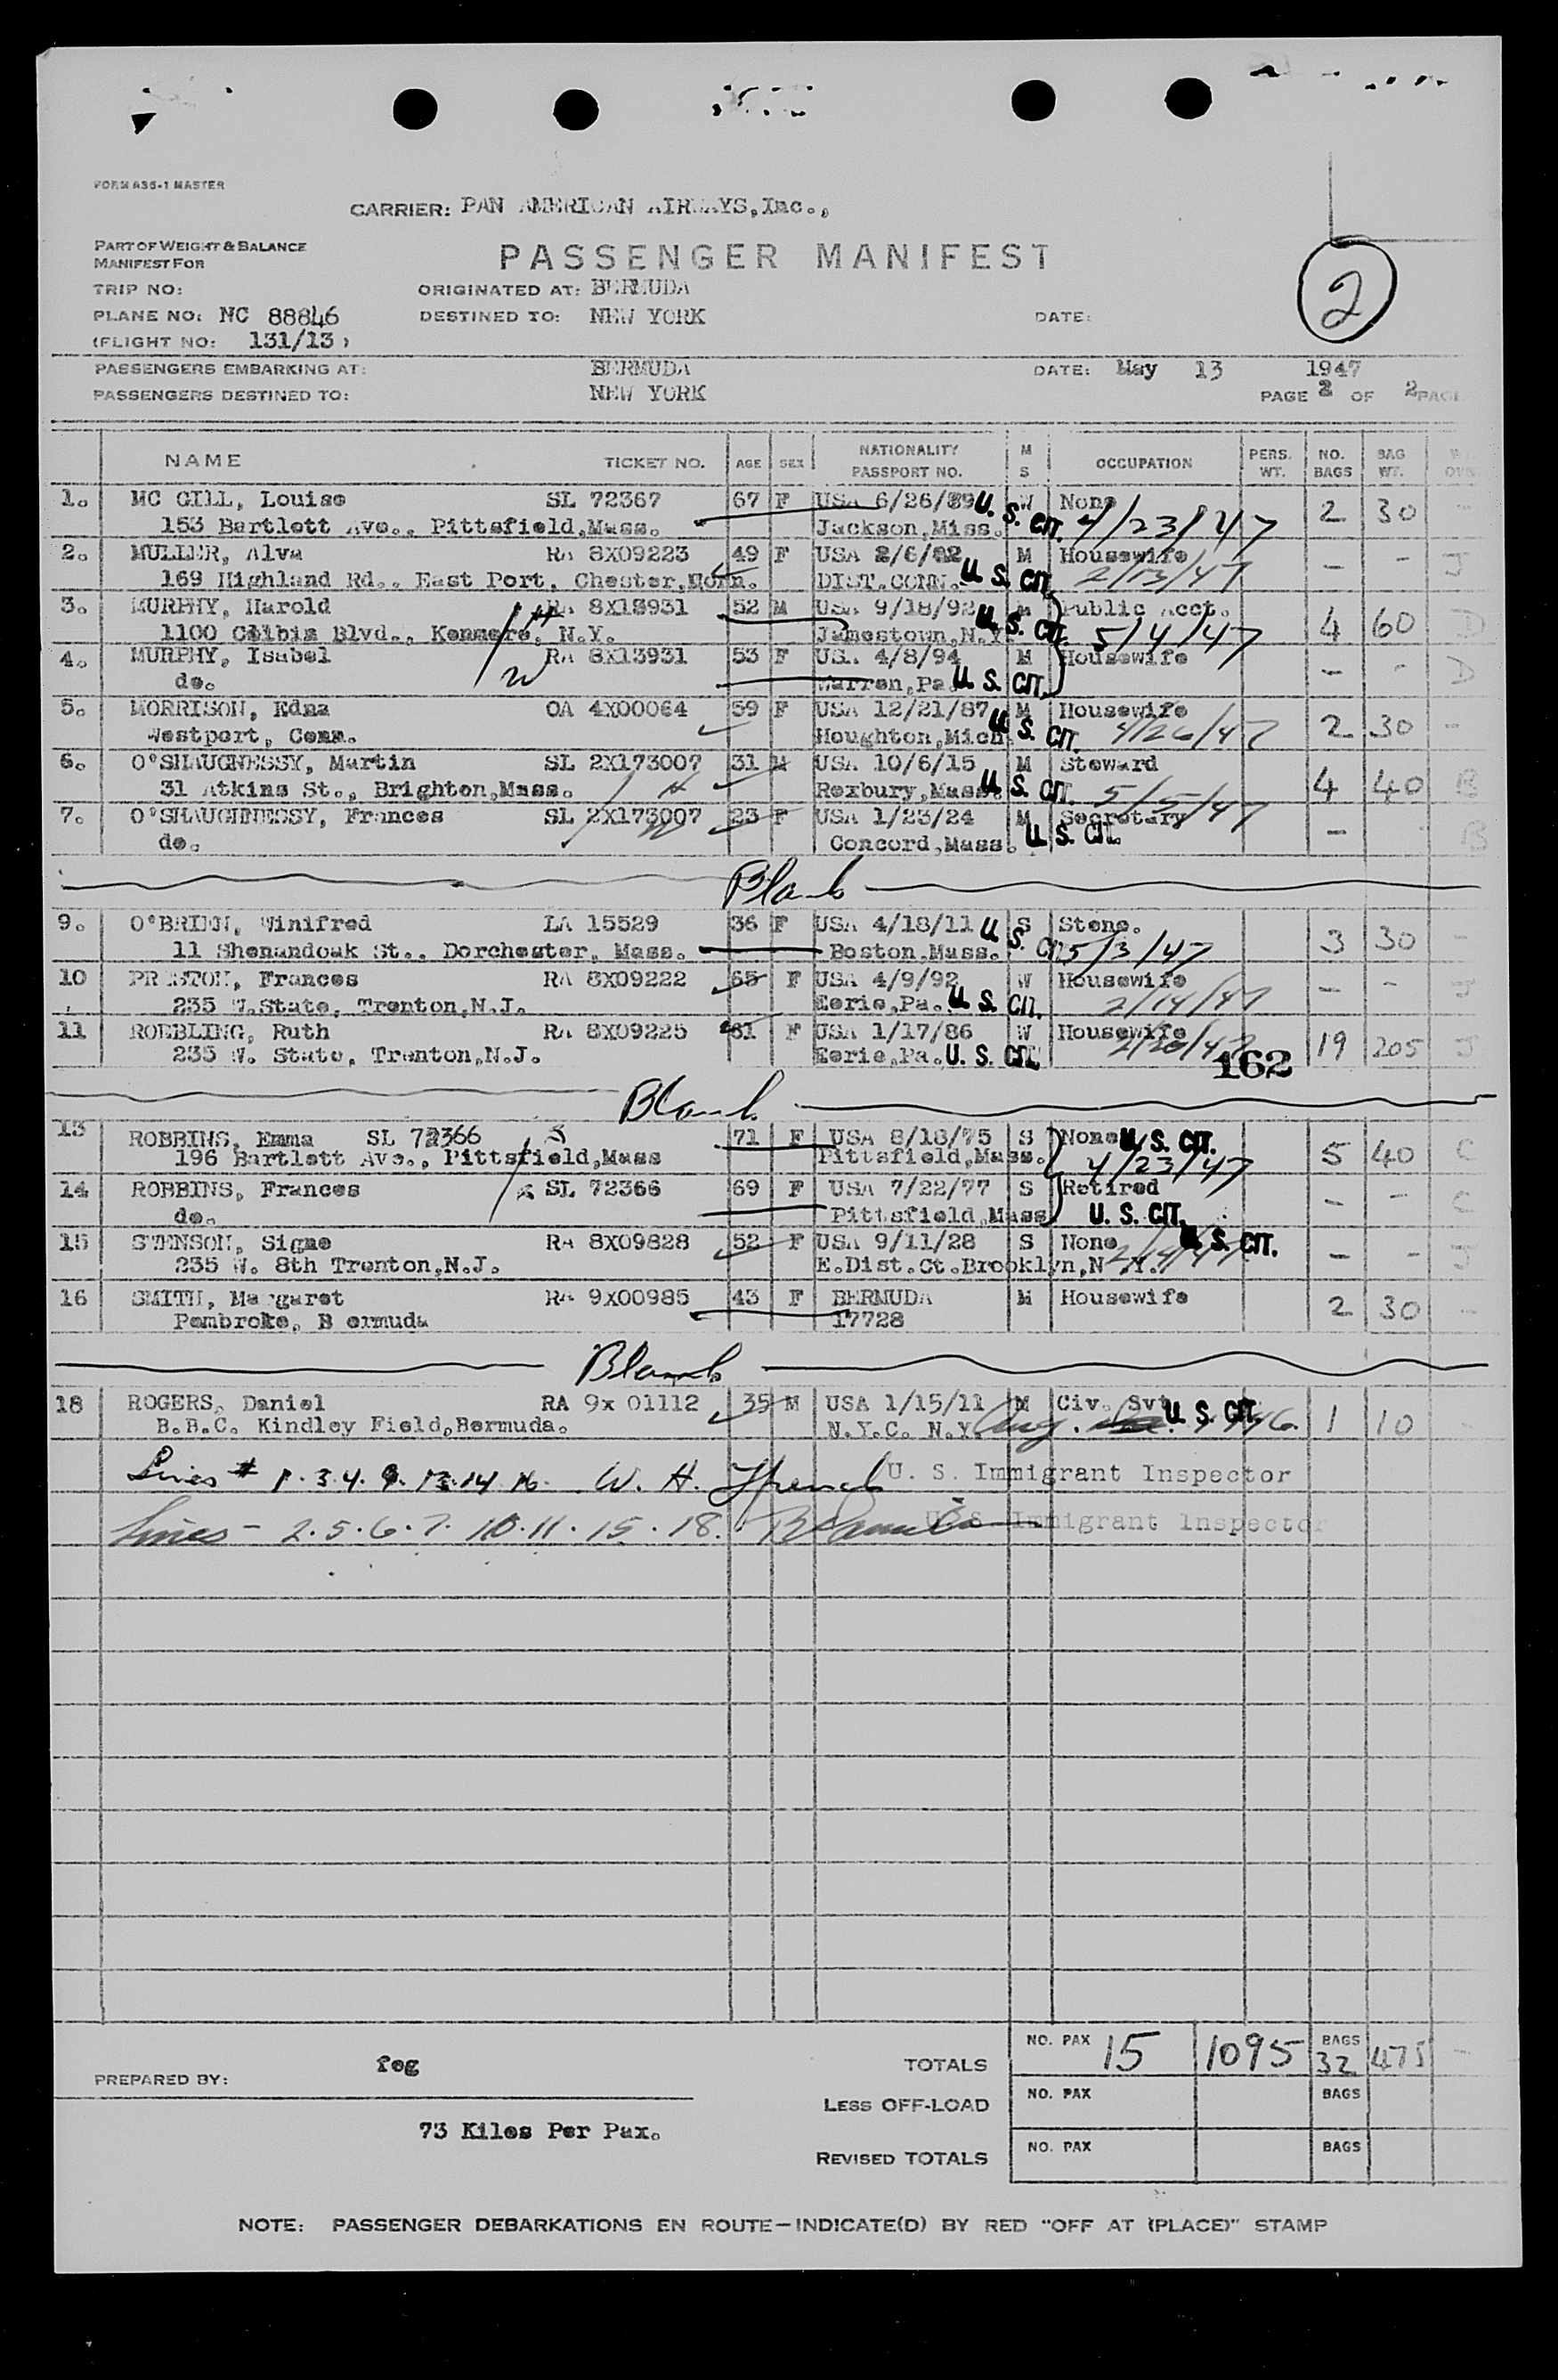 FORM A35-1 MASTER
CARRIER: PAN AMERICAN AIRWAYS, Inc.,
PART OF WEIGHT & BALANCE
MANIFEST FOR
PASSENGER MANIFEST
2
TRIP NO: ORIGINATED AT: BERMUDA
PLANE NO: NC 88846 DESTINED TO: NEW YORK DATE:
(FLIGHT NO: 131/13)
PASSENGERS EMBARKING AT: BERMUDA DATE: May 13 1947
PASSENGERS DESTINED TO: NEW YORK PAGE 2 OF 2 PAGE
NAME TICKET NO. AGE SEX NATIONALITY PASSPORT NO. M S OCCUPATION PERS. WT. NO. BAGS BAG WT.
1. MC GILL, Louise SL 72367 67 F USA 6/26/ U. S. CIT. W None 2 30 -
153 Bartlett Ave., Pittsfield,Mass. Jackson,Miss. 4/23/47
2. MULLER, Alva RA 8X09223 49 F USA 2/6/ M Housewife - - J
169 Highland Rd., East Port, Chester, DIST.CONN. U. S. CIT. 2/13/47
3. MURPHY, Harold RA 8X13931 52 M USA 9/18/92 U. S. CIT. M Public Acct. 4 60 D
1100 Blvd., Kenmore, N.Y. Jamestown,N.Y. 5/4/47
4. MURPHY, Isabel RA 8X13931 53 F USA 4/8/94 M Housewife - - D
do. Warren,Pa U. S. CIT.
5. MORRISON, Edna OA 4X00064 59 F USA 12/21/87 M Housewife 2 30 -
Westport, Conn. Houghton,Mich U. S. CIT. 4/26/47
6. O'SHAUGNESSY, Martin SL 2X173007 31 M USA 10/6/15 M Steward 4 40 B
31 Atkins St., Brighton,Mass. Roxbury,Mass. U. S. CIT. 5/5/47
7. O'SHAUGHNESSY, Frances SL 2X173007 23 F USA 1/23/24 M Secretary - B
do. Concord,Mass. U. S. CIT.
Blank
9. O'BRIEN, Winifred LA 15529 36 F USA 4/18/11 U. S. CIT. S Steno. 3 30 -
11 Shenandoak St., Dorchester, Mass. Boston,Mass. 5/3/47
10 PRESTON, Frances RA 8X09222 65 F USA 4/9/92 W Housewife - - J
235 W.State, Trenton,N.J. Eerie,Pa. U. S. CIT. 2/14/47
11 ROEBLING, Ruth RA 8X09225 61 F USA 1/17/86 W Housewife 19 205 J
235 W. State, Trenton,N.J. Eerie,Pa. U. S. CIT. 2/20/47
162
Blank
13 ROBBINS, Emma SL 72366 71 F USA 8/18/75 S None U. S. CIT. 5 40 C
196 Bartlett Ave., Pittsfield,Mass Pittsfield,Mass. 4/23/47
14 ROBBINS, Frances SL 72366 69 F USA 7/22/77 S Retired - - C
do. Pittsfield,Mass U. S. CIT.
15 STENSON, Signe RA 8X09828 52 F USA 9/11/28 S None U. S. CIT. - - J
235 W. 8th Trenton,N.J. E.Dist.Ct.Brooklyn,N.Y.
16 SMITH, Margaret RA 9X00985 43 F BERMUDA M Housewife 2 30 -
Pembroke, B ermuda 17728
Blank
18 ROGERS, Daniel RA 9x 01112 35 M USA 1/15/11 M Civ. Svt U. S. CIT. 1 10
B.B.C. Kindley Field,Bermuda. N.Y.C. N.Y. Aug.
Lines # 1. 3. 4. 9. 13. 14. 16. W. H. French U. S. Immigrant Inspector
Lines - 2. 5. 6. 7. 10. 11. 15. 18. U. S. Immigrant Inspector
TOTALS NO. PAX 15 1095 BAGS 32 475 -
PREPARED BY: feg
LESS OFF-LOAD NO. PAX BAGS
73 Kilos Per Pax.
REVISED TOTALS NO. PAX BAGS
NOTE: PASSENGER DEBARKATIONS EN ROUTE—INDICATE(D) BY RED "OFF AT (PLACE)" STAMP